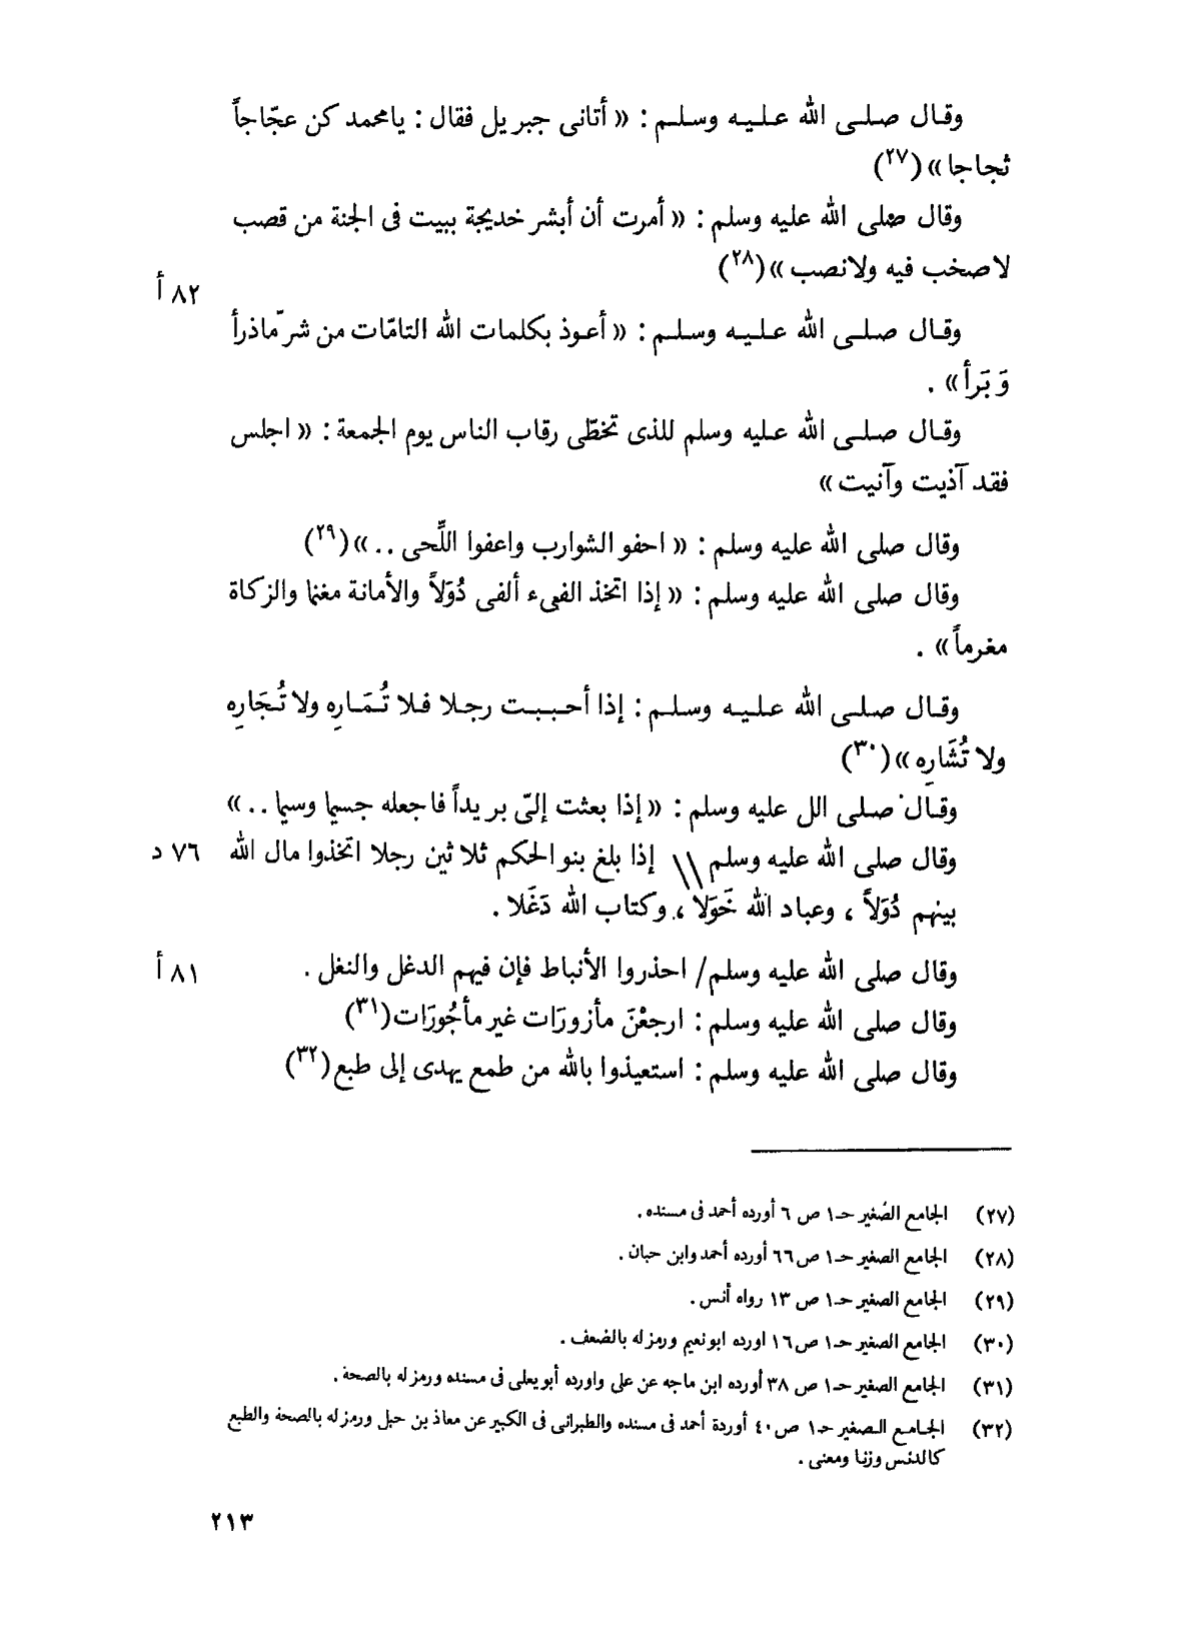 وقـال صلـى الله عـلـيـه وسـلـم : « أتانى جبريل فقال : يامحمد كن عجّاجاً
ثجاجا » (٢٧)
وقال صلى الله عليه وسلم : « أمرت أن أبشر خديجة ببيت فى الجنة من قصب
لاصخب فيه ولانصب » (٢٨)
٨٢ أ
وقـال صلـى الله عـلـيـه وسـلـم : « أعـوذ بكلمات الله التامّات من شرّ ماذرأ
وَبَرأ » .
وقـال صلـى الله عليه وسلم للذى تخطّى رقاب الناس يوم الجمعة : « اجلس
فقد آذيت وآنيت »
وقال صلى الله عليه وسلم : « احفو الشوارب واعفوا اللِّحى .. » (٢٩)
وقال صلى الله عليه وسلم : « إذا اتخذ الفىء ألفى دُوَلاً والأمانة مغنما والزكاة
مغرماً » .
وقـال صلـى الله عـلـيـه وسـلـم : إذا أحـبـبـت رجـلا فـلا تُـمَـارِه ولا تُـجَارِه
ولا تُشَارِه » (٣٠)
وقـال صلـى الل عليه وسلم : « إذا بعثت إلىّ بريداً فاجعله جسيما وسيما .. »
وقال صلى الله عليه وسلم \\ إذا بلغ بنو الحكم ثلاثين رجلا اتخذوا مال الله ٧٦ د
بينهم دُوَلاً ، وعباد الله خَوَلا ، وكتاب الله دَغَلا .
وقال صلى الله عليه وسلم/ احذروا الأنباط فإن فيهم الدغل والنغل . ٨١ أ
وقال صلى الله عليه وسلم : ارجعْنَ مأزورَات غير مأجُورَات (٣١)
وقال صلى الله عليه وسلم : استعيذوا بالله من طمع يهدى إلى طبع (٣٢)
(٢٧) الجامع الصغير حـ١ ص ٦ أورده أحمد فى مسنده .
(٢٨) الجامع الصغير حـ١ ص ٦٦ أورده أحمد وابن حبان .
(٢٩) الجامع الصغير حـ١ ص ١٣ رواه أنس .
(٣٠) الجامع الصغير حـ١ ص ١٦ اورده ابونعيم ورمز له بالضعف .
(٣١) الجامع الصغير حـ١ ص ٣٨ أورده ابن ماجه عن على واورده أبويعلى فى مسنده ورمز له بالصحة .
(٣٢) الجـامـع الـصغير حـ١ ص ٤٠ أوردة أحمد فى مسنده والطبرانى فى الكبير عن معاذ بن حبل ورمز له بالصحة والطبع
كالدنس وزنا ومعنى .
٢١٣